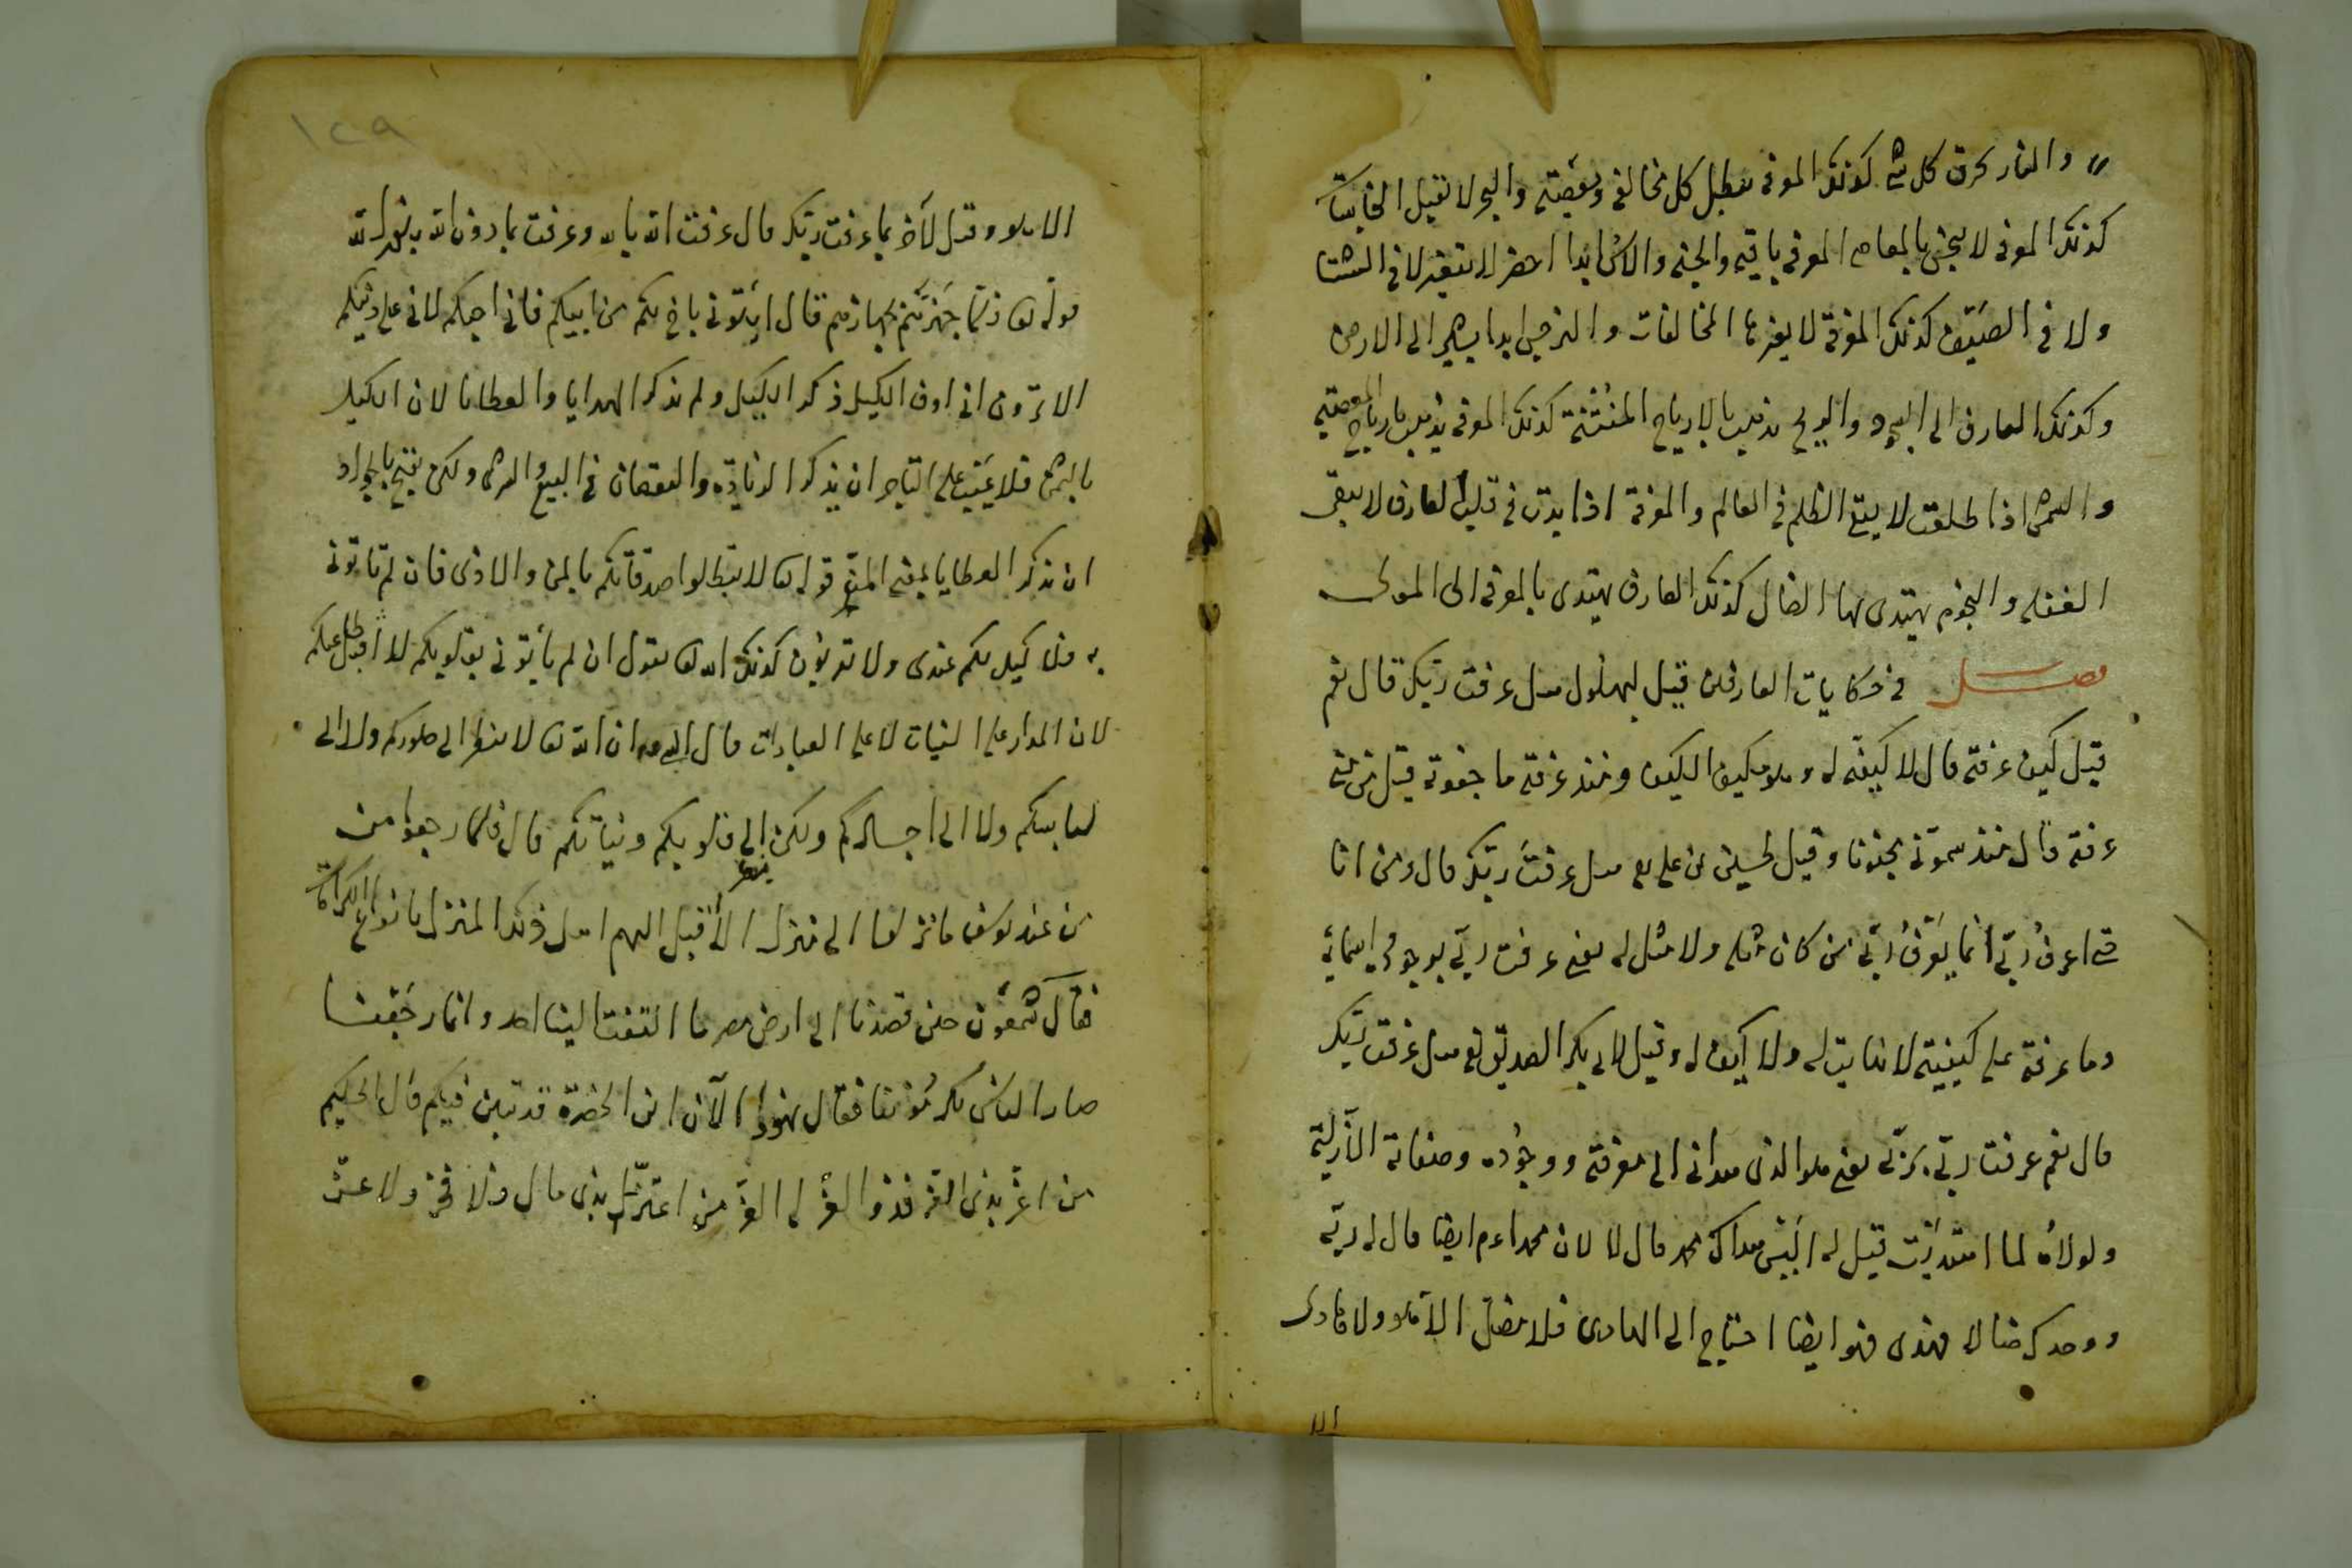 والنار تحرق كل شئ كذلك المعرفة تبطل كل مخالفة ومعصية والبحر لا تقبل الخباثة
كذلك المعرفة لا ينجس بالمعاصى المعرفة باقية والجنة والآس ابدا اخضر لا يتغير لا فى الشتا
ولا فى الصيف كذلك المعرفة لا يغيرها المخالفات والنرجس ابدا يشير الى الارض
وكذلك المعارف الى السجود والريح تذهب بالارياح المنتنة كذلك المعرفة تذهب بارياح المعصية
والشمس اذا طلعت لا يبقى الظلم فى العالم والمعرفة اذا بدت فى قلب العارف لا يبقى
الغفلة والنجوم يهتدى بها الضال كذلك العارف يهتدى بالمعرفة الى المولى
فصل فى حكايات العارفين قيل لبهلول هل عرفت ربك قال نعم
قيل كيف عرفته قال لا كيفية له وهو مكيف الكيف ومنذ عرفته ما جفوته قيل متى
عرفته قال منذ سموتى مجنونا وقيل لحسين بن على رضى هل عرفت ربك قال ومن انا
حتى اعرف ربى انما يعرف ربى من كان مثله ولا مثل له يعنى عرفت ربى بوجود اسمائه
وما عرفته على كيفيته لا نهاية له ولا كيف له وقيل لابى بكر الصديق رضى هل عرفت ربك
قال نعم عرفت ربى بربى يعنى هو الذى هدانى الى معرفته ووجوده وصفاته الازلية
ولولاه لما اهتديت قيل له اليس هداك محمد قال لا لان محمدا عم ايضا قال له ربه
ووجدك ضالا فهدى فهو ايضا احتاج الى الهادى فلا مضل الا هو ولا هادى
الا
١٢٩
الا هو وقيل لآخر بما عرفت ربك قال عرفت الله بالله وعرفت ما دون الله بنور الله
قوله تعا فلما جهزهم بجهازهم قال ائتونى باخ لكم من ابيكم فانى احبكم لانى على دينكم
الا ترون انى اوف الكيل ذكر الكيل ولم يذكر الهدايا والعطايا لان الكيل
بالثمن فلا عيب على التاجر ان يذكر الزيادة والنقصان فى البيع والشرى ولكن يقبح بالجواد
ان يذكر العطايا قوله تعا لا تبطلوا صدقاتكم بالمن والاذى فان لم تأتونى
به فلا كيل لكم عندى ولا تقربون كذلك الله تعا يقول ان لم يأتونى بقلوبكم لا اقبل عملكم
لان المدار على النيات لا على العبادات قال النبى عم ان الله تعا لا ينظر الى صوركم ولا الى
لباسكم ولا الى اجسادكم ولكن الى قلوبكم ونياتكم قال فلما رجعوا من
من عند يوسف ما نزلوا الى منزل الا اقبل اليهم اهل ذلك المنزل بانواع الكرامات
فقال شمعون حين قصدنا الى ارض مصر ما التفت الينا احد وانما رجعنا
صار الناس يكرموننا فقال يهودا الآن اثر الحضرة قد تبين فيكم قال الحكيم
من اعز بذى العز فذو العز له العز من اعتز بذى مال فلا فخر ولا عز